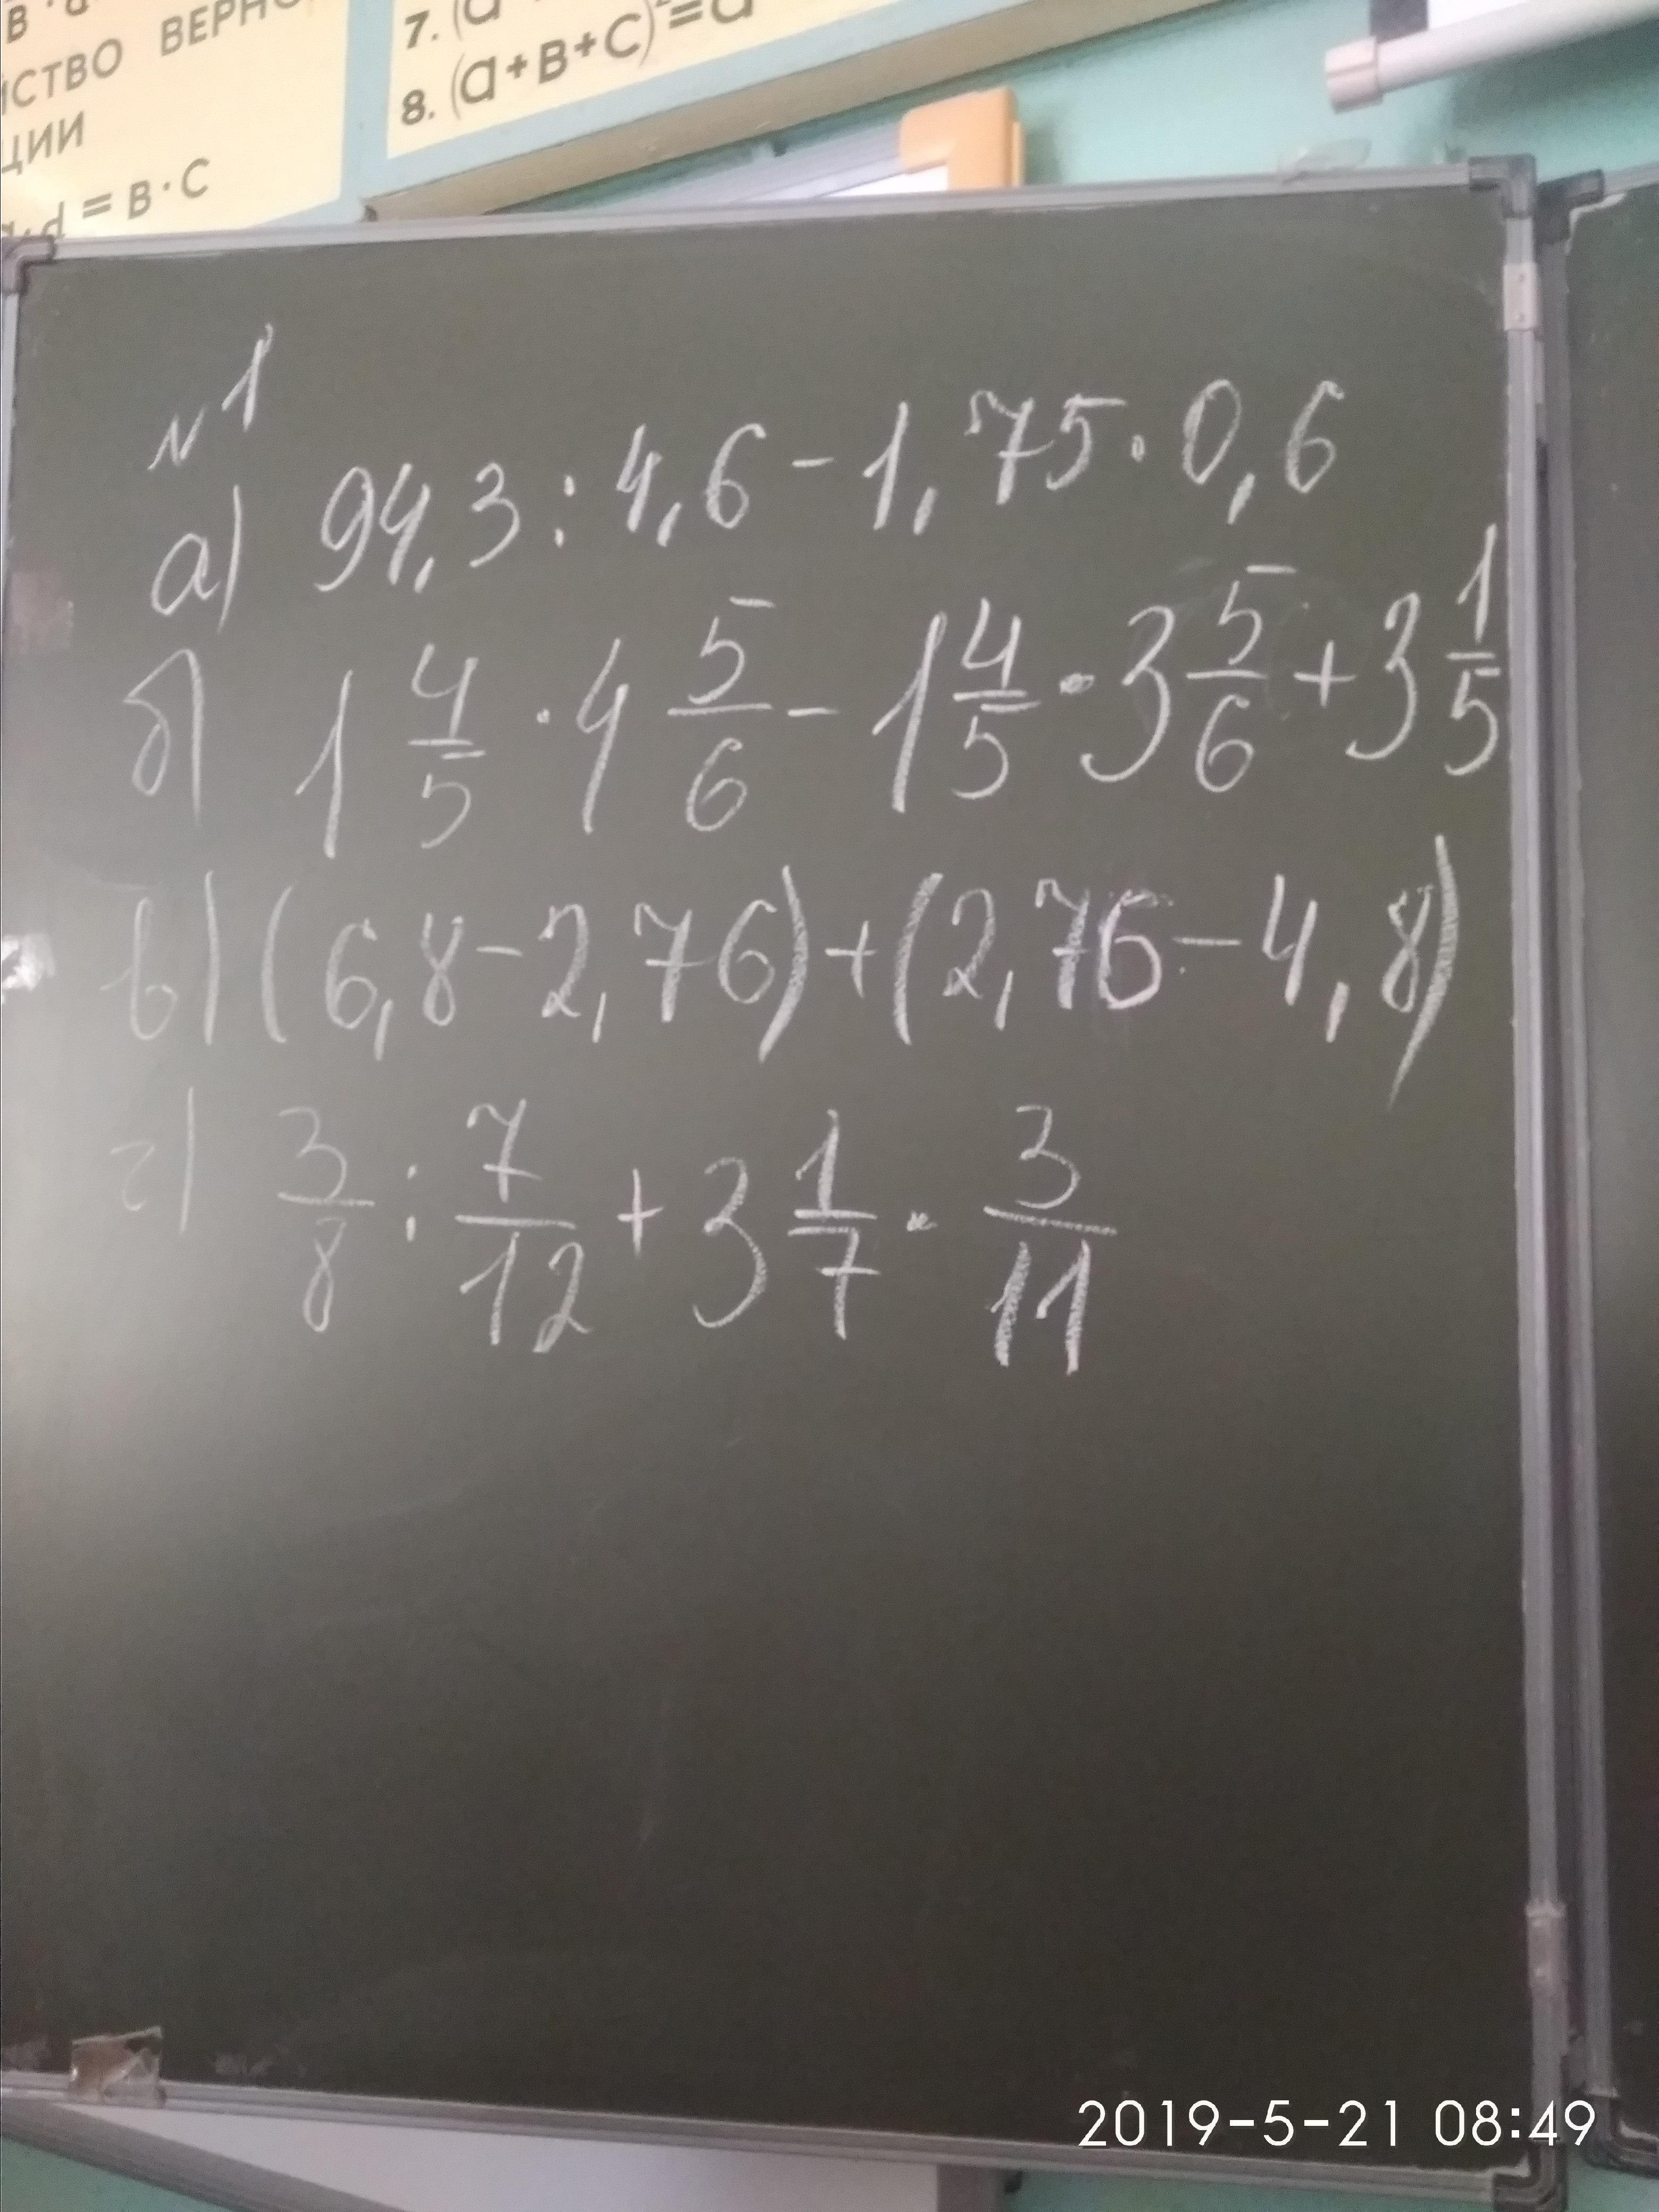 В
СТВО
ЦИИ
d = в·с
7. (а
8. (а+в+с)²=а
№1
а) 94,3 : 4,6 - 1,75 · 0,6
б) 1 4/5 · 4 5/6 - 1 4/5 · 3 5/6 + 3 1/5
в) (6,8 - 2,76) + (2,76 - 4,8)
г) 3/8 : 7/12 + 3 1/7 · 3/11
2019-5-21 08:49